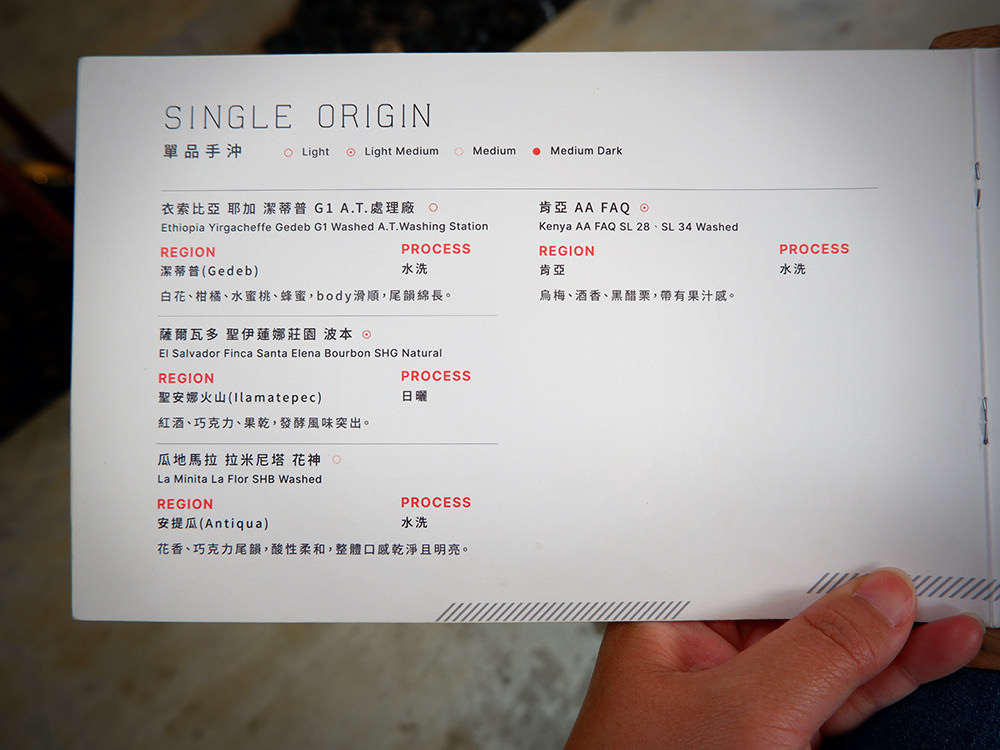 SINGLE ORIGIN
單品手沖 Light Light Medium Medium Medium Dark
衣索比亞 耶加 潔蒂普 G1 A.T.處理廠
Ethiopia Yirgacheffe Gedeb G1 Washed A.T.Washing Station
REGION PROCESS
潔蒂普(Gedeb) 水洗
白花、柑橘、水蜜桃、蜂蜜,body滑順,尾韻綿長。
薩爾瓦多 聖伊蓮娜莊園 波本
El Salvador Finca Santa Elena Bourbon SHG Natural
REGION PROCESS
聖安娜火山(Ilamatepec) 日曬
紅酒、巧克力、果乾,發酵風味突出。
瓜地馬拉 拉米尼塔 花神
La Minita La Flor SHB Washed
REGION PROCESS
安提瓜(Antiqua) 水洗
花香、巧克力尾韻,酸性柔和,整體口感乾淨且明亮。
肯亞 AA FAQ
Kenya AA FAQ SL 28、SL 34 Washed
REGION PROCESS
肯亞 水洗
烏梅、酒香、黑醋栗,帶有果汁感。